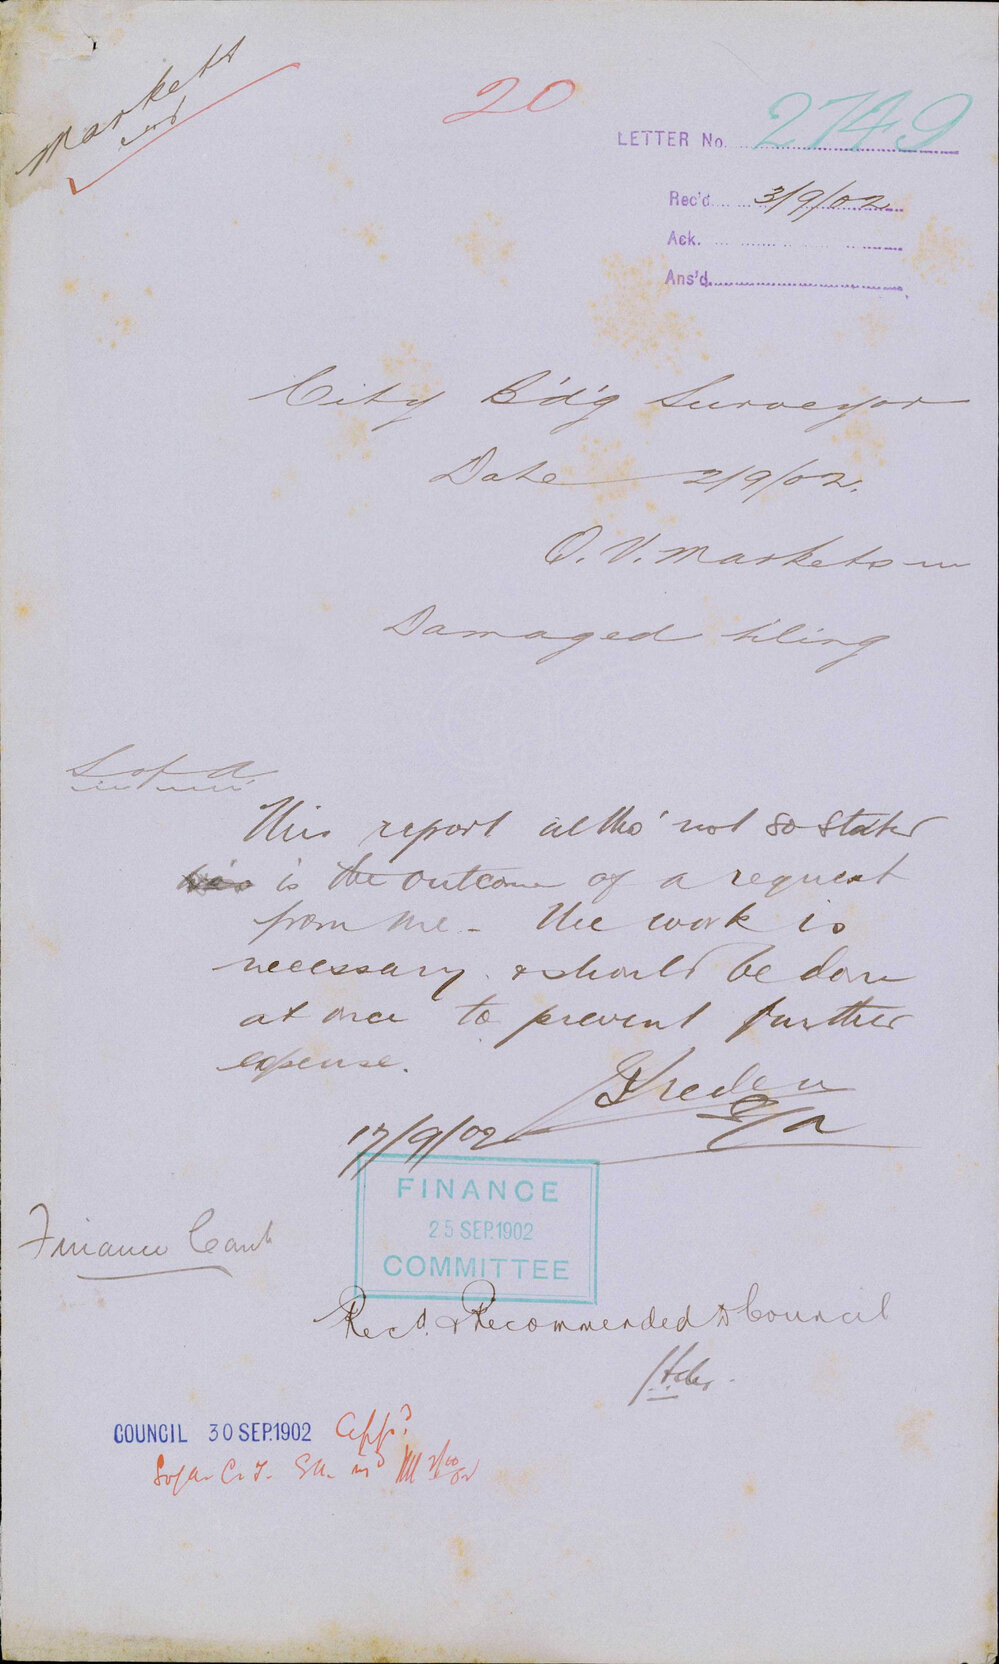 Markets
20
LETTER No. 2749
Rec'd 3/9/02
Ack.
Ans'd
City B'd'g Surveyor
Date 2/9/02.
Q. V. Markets re
Damaged tiling
S of A
This report altho' not so stated
is the outcome of a request
from me - The work is
necessary & should be done
at once to prevent further
expense.
17/9/02
FINANCE
25 SEP. 1902
COMMITTEE
Finance Comte
Recd. & Recommended to Council
COUNCIL 30 SEP. 1902 Appd